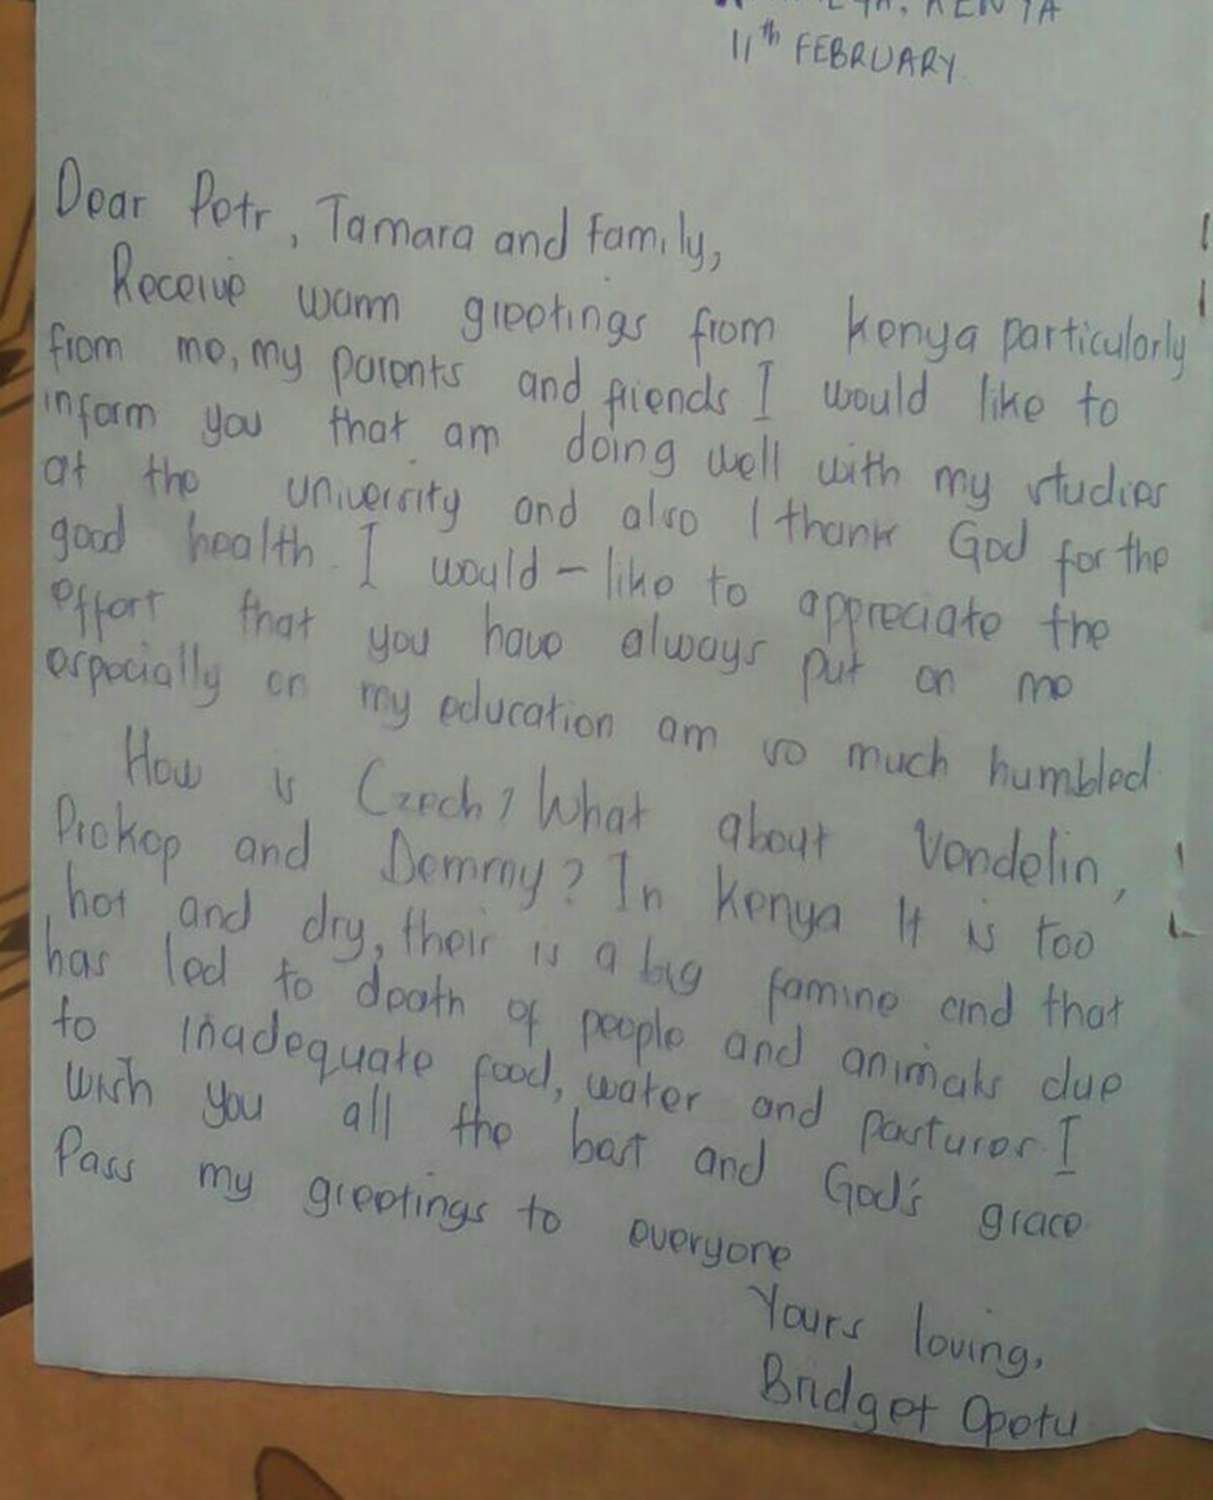 KENYA
11th FEBRUARY
Dear Petr, Tamara and family,
Receive warm greetings from Kenya particularly
from me, my parents and friends I would like to
inform you that am doing well with my studies
at the university and also I thank God for the
good health. I would - like to appreciate the
effort that you have always put on me
especially on my education am so much humbled
How is Czech? What about Vendelin,
Prokop and Demmy? In Kenya It is too
hot and dry, their is a big famine and that
has led to death of people and animals due
to inadequate food, water and pastures. I
wish you all the best and God's grace
Pass my greetings to everyone
Yours loving,
Bridget Opetu